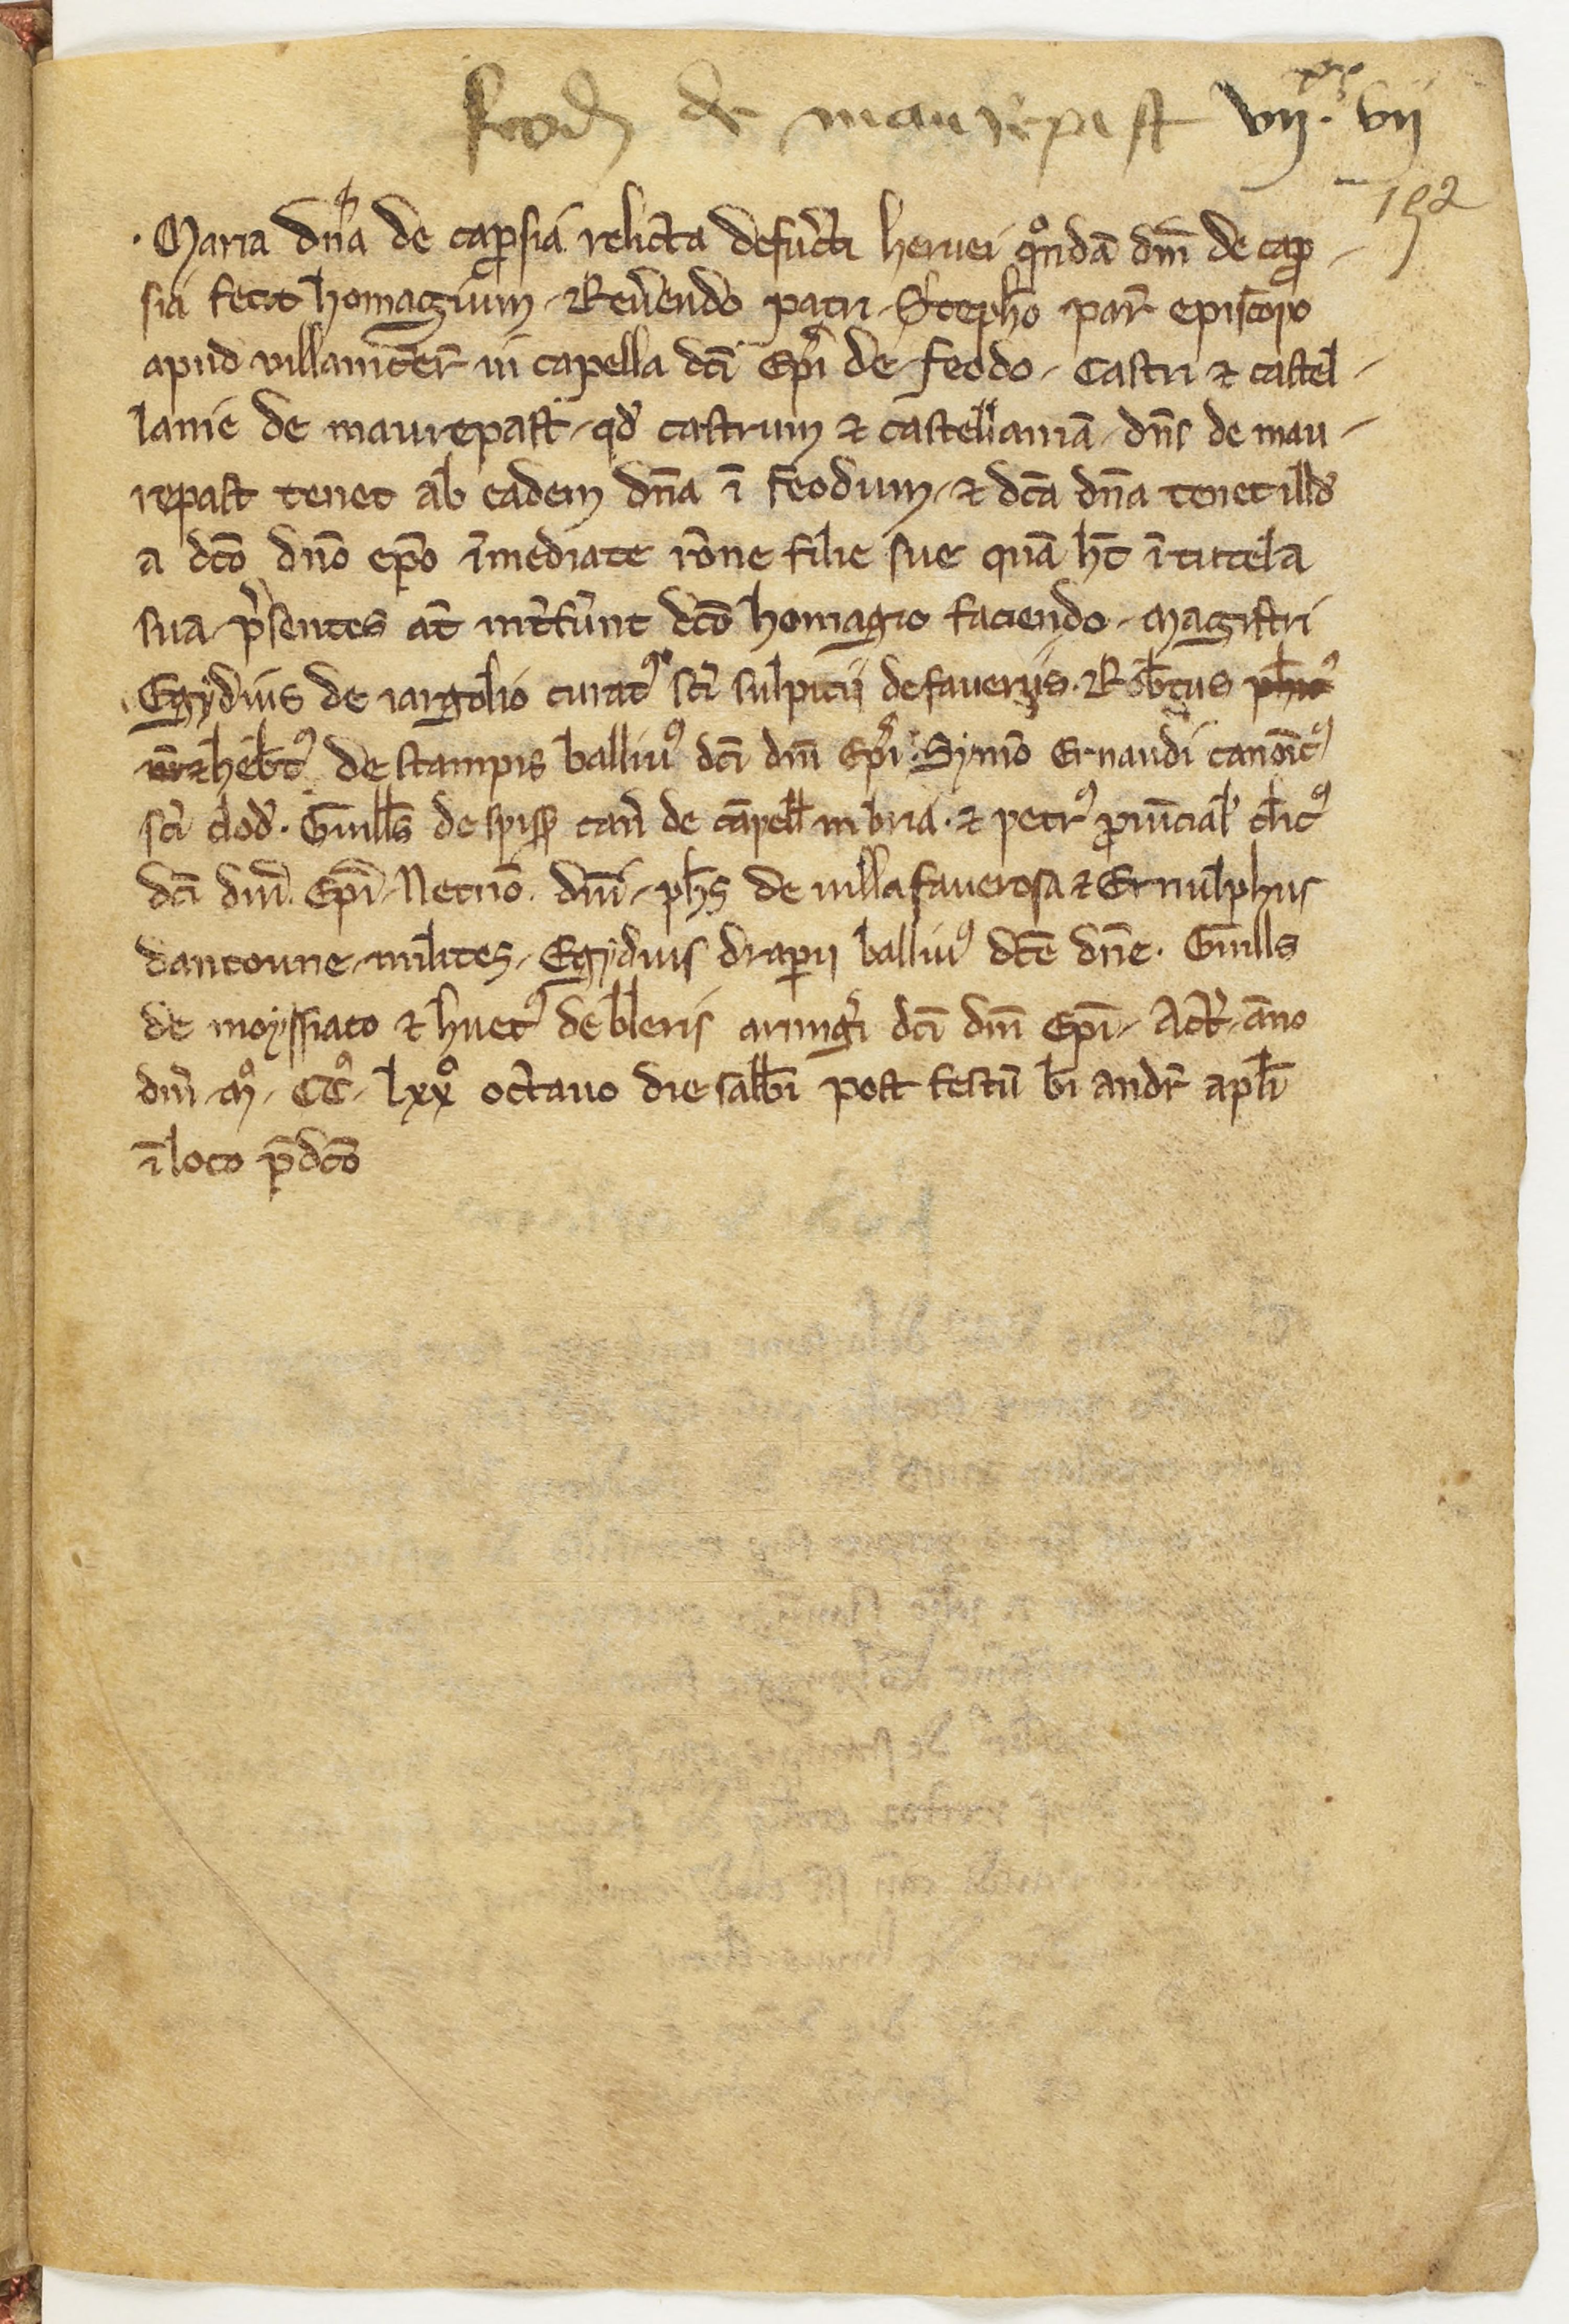 feod de maurepast vij. vij
152
. Maria dn̄a de cap̱sia relicta defūcti heruei qͦndā dn̄i de cap̱
sia fecit homagium Reu̾endo patri Steph̄o par̄ episcopo
apud villamter̄ in capella dc̄i ep̄i de feodo castri ⁊ castel
lanie de maurepast qd̾ castrum ⁊ castellaniā dn̄s de mau
repast tenet ab eadem dn̄a ī feodum ⁊ dc̄a dn̄a tenet illd̾
a dc̄o dn̄o ep̄o īmediate rōne filie sue quā ht̄ ī tutela
sua p̾sentes āt int̾fūnt dc̄o homagio faciendo magistri
Egydius de iargolio curatꝰ sc̄i sulpicii de faueriis. Rob̾tus
heb̾tꝰ de stampis balliuꝰ dc̄i dn̄i ep̄i. Symō Ernaudi canōicꝰ
sc̄i clod̾. Guill̄s de spiss̾ can̄ de cāpell̄ in bria. ⁊ petrꝰ ꝓuīcial̾ cl̄icꝰ
dc̄i dn̄i. ep̄i. Necnō. dn̄i ph̄s de villa fauerosa ⁊ Ernulphus
dantoune milites Egydius drap̱ii balliuꝰ dc̄e dn̄e. Guill̄s
de moyssiaco ⁊ huetꝰ de bleris armig̾i dc̄i dn̄i ep̄i Act̄ āno
dn̄i mͦ. CCͦ. lxxͦ octauo die sabb̄i post festū b̄i andr̄ apl̄i
ī loco p̄dc̄o